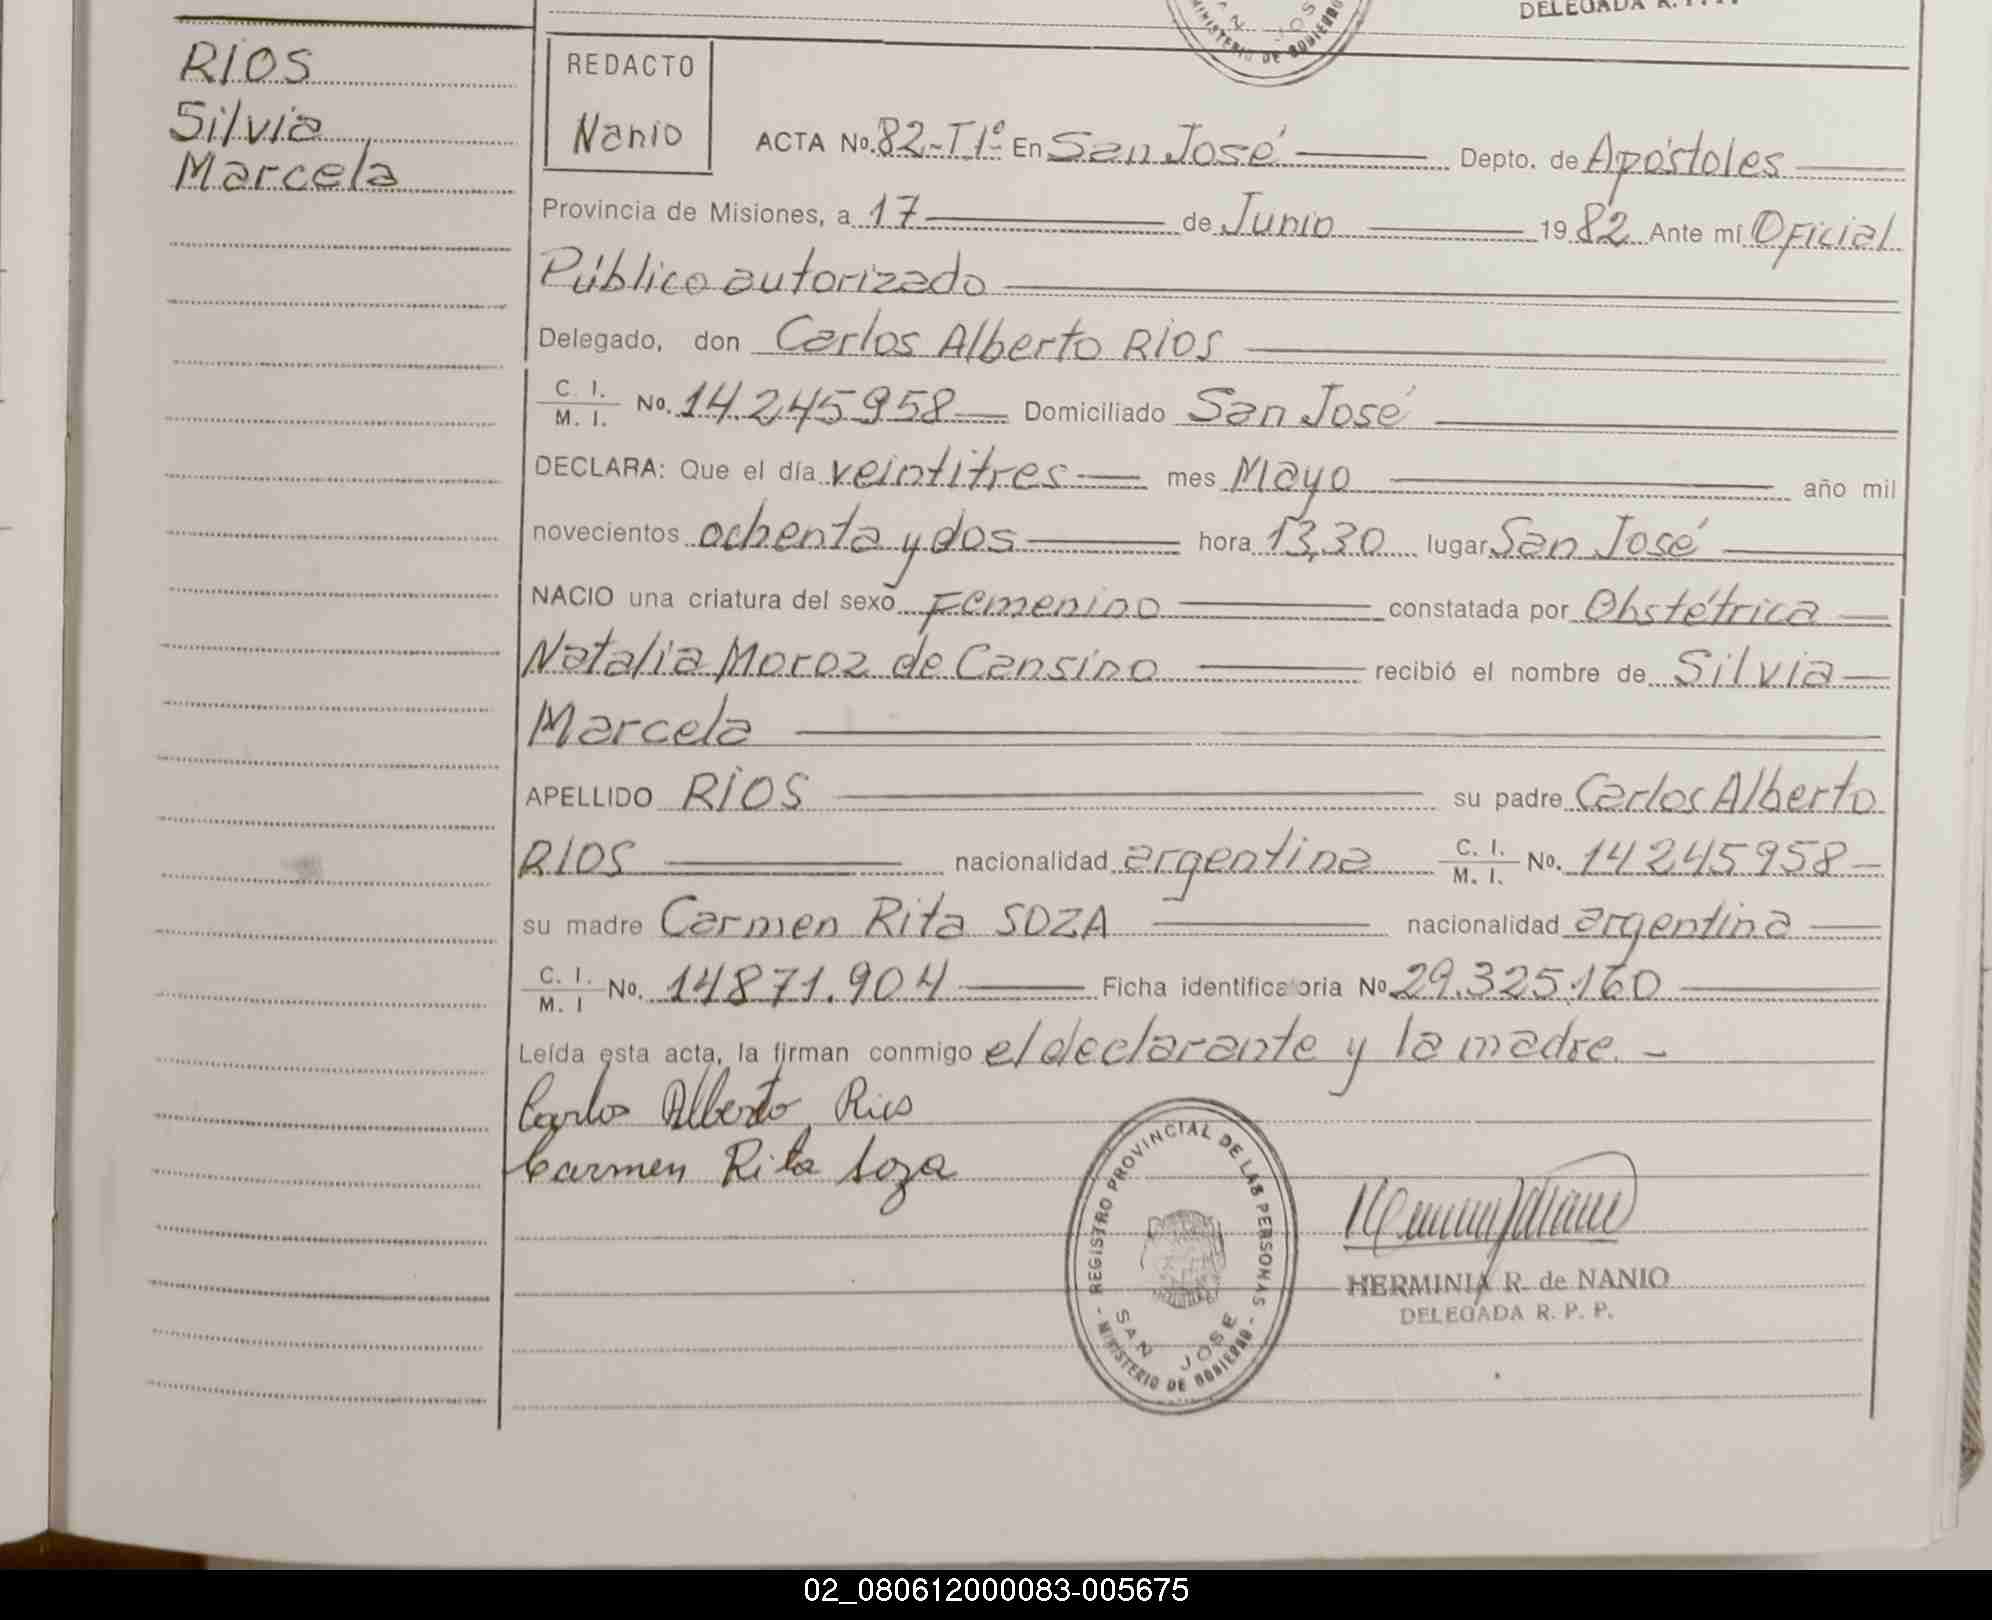 DELEGADA R. P. P.
SAN JOSE
MINISTERIO DE GOBIERNO
RIOS
Silvia
Marcela
REDACTO
Nanio
ACTA No. 82-T1º- En San José Depto. de Apóstoles
Provincia de Misiones, a 17 de Junio 1982 Ante mí Oficial
Público autorizado
Delegado, don Carlos Alberto RIOS
C. I. M. I. No. 14.245958 Domiciliado San José
DECLARA: Que el día veintitres mes Mayo año mil
novecientos ochenta y dos hora 13,30 lugar San José
NACIO una criatura del sexo Femenino constatada por Obstétrica
Natalia Moroz de Cansino recibió el nombre de Silvia
Marcela
APELLIDO RIOS su padre Carlos Alberto
RIOS nacionalidad argentina C. I. M. I. No. 14245958-
su madre Carmen Rita SOZA nacionalidad argentina
C. I. M. I No. 14871.904 Ficha identificatoria No 29.325.160
Leída esta acta, la firman conmigo el declarante y la madre.-
Carlos Alberto Rios
Carmen Rita Soza
- REGISTRO PROVINCIAL DE LAS PERSONAS -
SAN JOSE
MINISTERIO DE GOBIERNO
HERMINIA R. de NANIO
DELEGADA R. P. P.
02_080612000083-005675